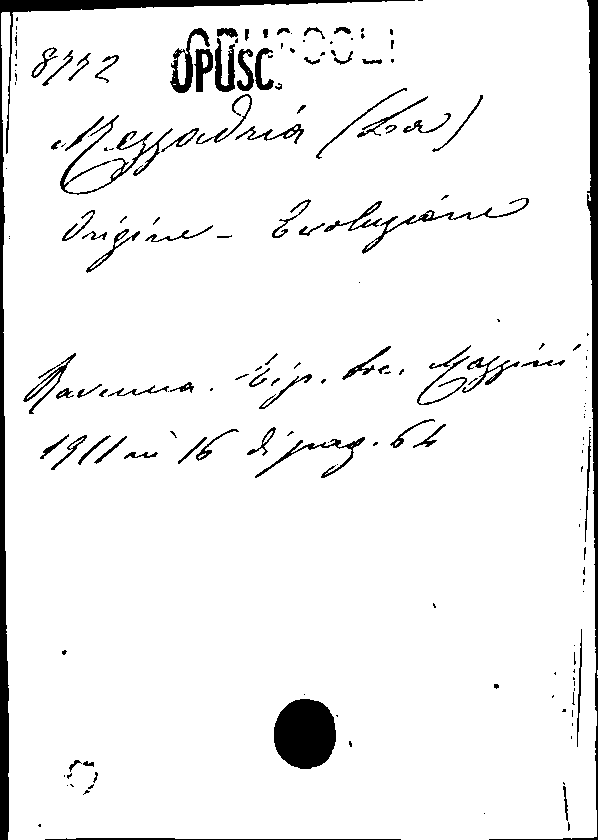 OPUSCOLI
8772 OPUSC.
Mezzadria (La)
Origine - Evoluzione
Ravenna. Tip. Soc. Mazzini
1911 in 16 di pag. 64